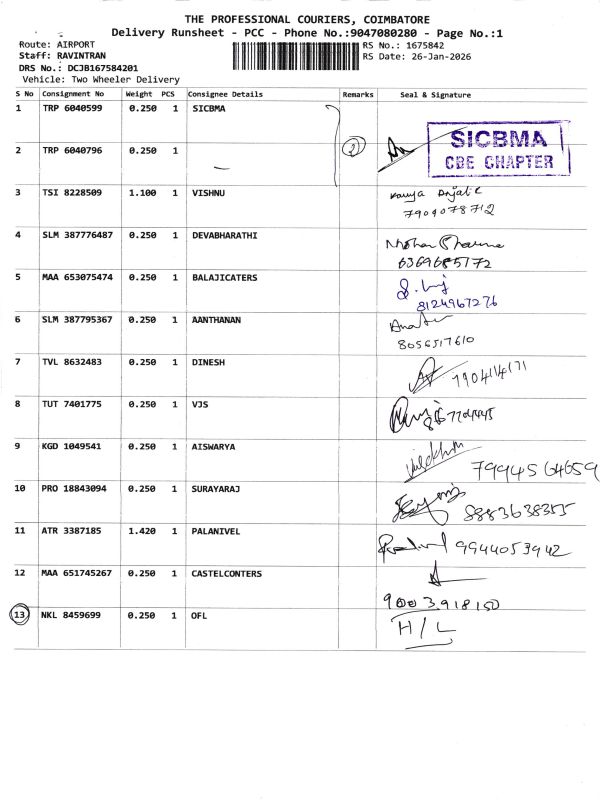 THE PROFESSIONAL COURIERS, COIMBATORE
Delivery Runsheet - PCC - Phone No.:9047080280 - Page No.:1
Route: AIRPORT
RS No.: 1675842
Staff: RAVINTRAN
RS Date: 26-Jan-2026
DRS No.: DCJB167584201
Vehicle: Two Wheeler Delivery
S No Consignment No Weight PCS Consignee Details Remarks Seal & Signature
1 TRP 6040599 0.250 1 SICBMA
2 TRP 6040796 0.250 1 2
SICBMA
CBE CHAPTER
3 TSI 8228509 1.100 1 VISHNU
7909078712
4 SLM 387776487 0.250 1 DEVABHARATHI
6369685172
5 MAA 653075474 0.250 1 BALAJICATERS
8124967276
6 SLM 387795367 0.250 1 AANTHANAN
8056517610
7 TVL 8632483 0.250 1 DINESH
8 TUT 7401775 0.250 1 VJS
9 KGD 1049541 0.250 1 AISWARYA
7994564659
10 PRO 18843094 0.250 1 SURAYARAJ
8883638355
11 ATR 3387185 1.420 1 PALANIVEL
9944053942
12 MAA 651745267 0.250 1 CASTELCONTERS
9003918150
13 NKL 8459699 0.250 1 OFL H/L